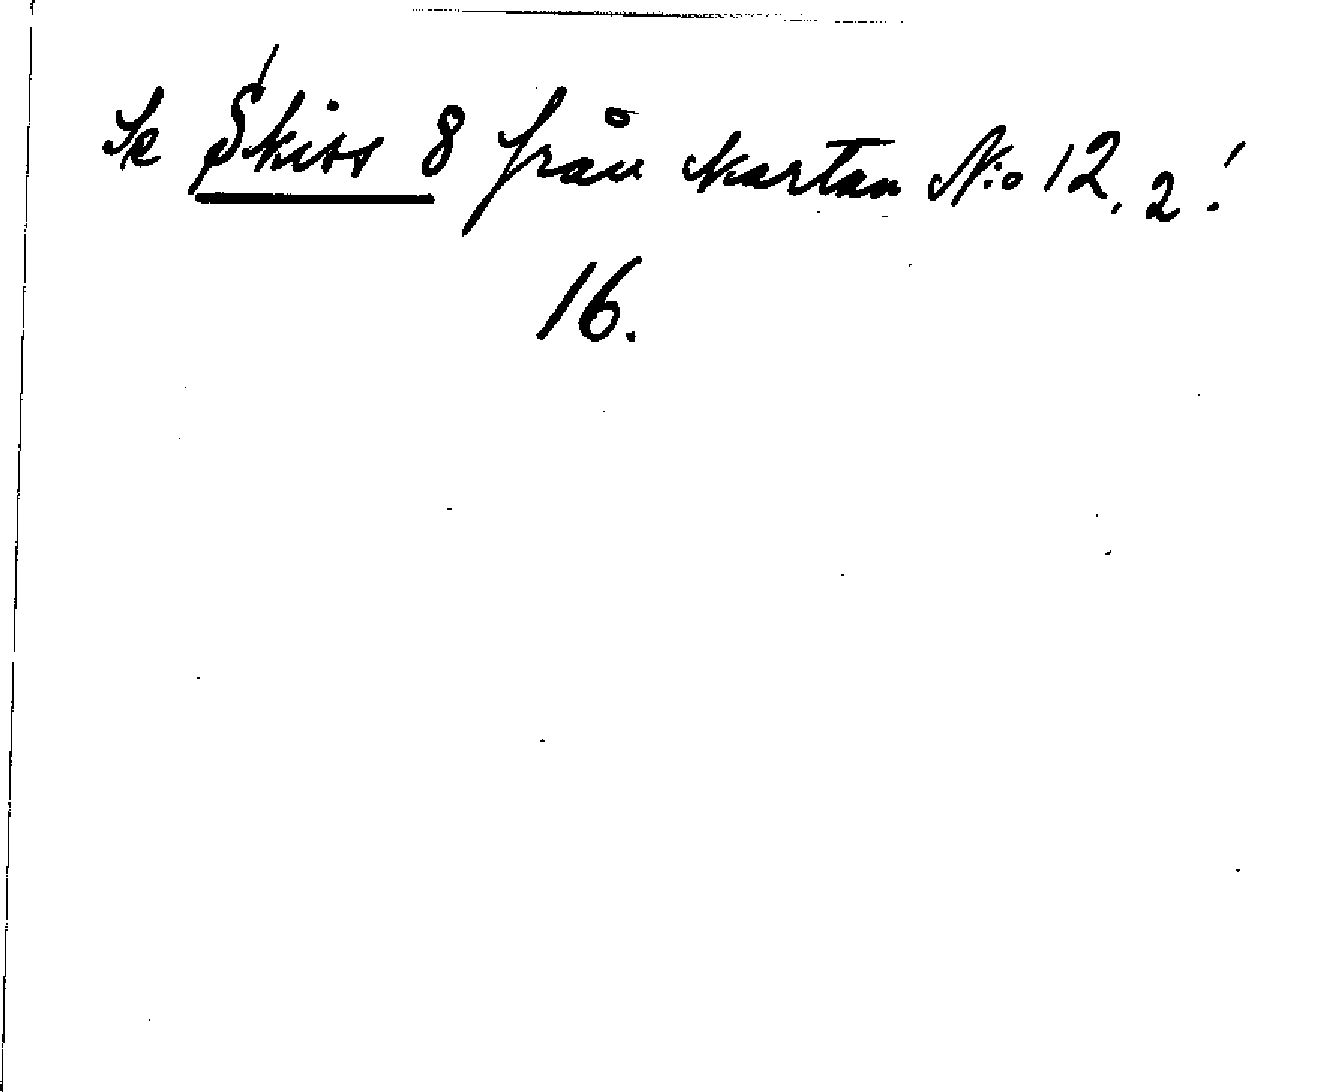 Se Skiss 8 från kartan N:o 12, 2!
16.